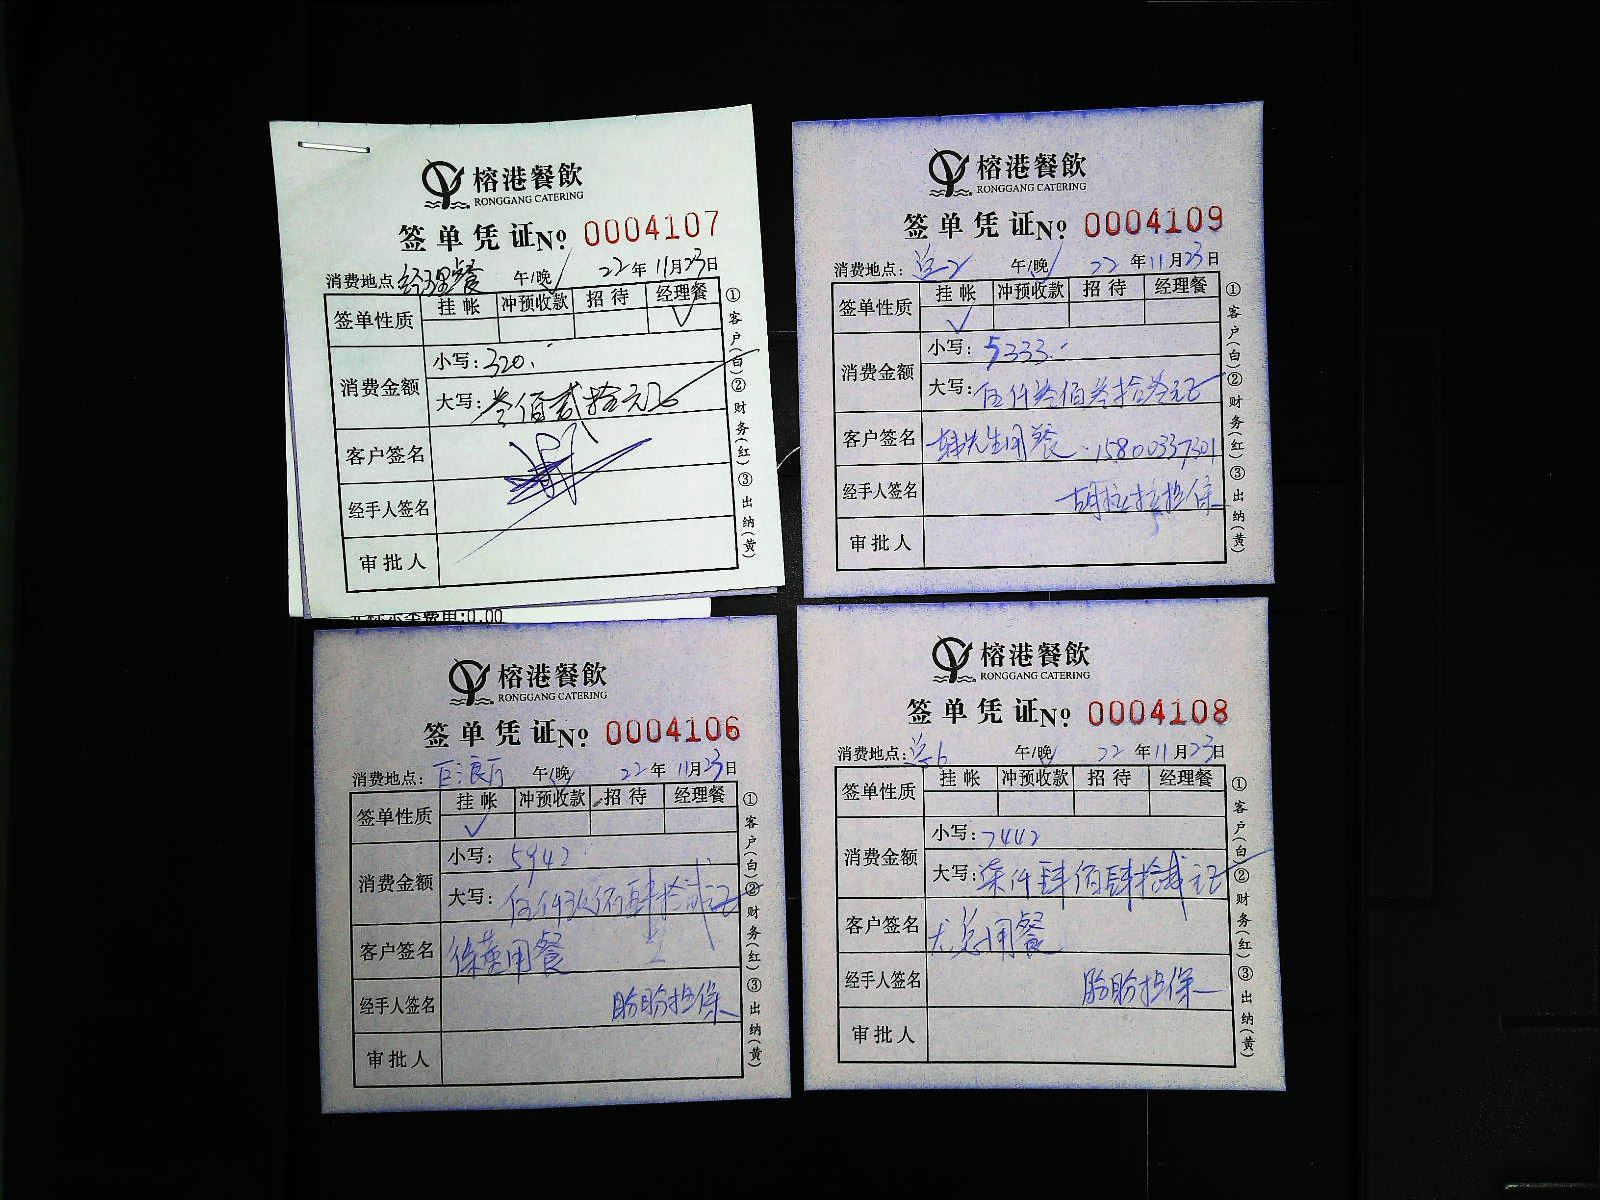 榕港餐飲
RONGGANG CATERING
签单凭证 No 0004107
消费地点:经理餐 午/晚√ 22年11月23日
签单性质 挂帐 冲预收款 招待 经理餐
√
消费金额 小写:320.-
大写:叁佰贰拾元正
客户签名
经手人签名
审批人
①客户(白)②财务(红)③出纳(黄)
榕港餐飲
RONGGANG CATERING
签单凭证 No 0004109
消费地点: 午/晚√ 22年11月23日
签单性质 挂帐 冲预收款 招待 经理餐
√
消费金额 小写:5333.-
大写:伍仟叁佰叁拾叁元正
客户签名 韩先生用餐.15800337301
经手人签名 胡拉拉担保
审批人
①客户(白)②财务(红)③出纳(黄)
:0.00
榕港餐飲
RONGGANG CATERING
签单凭证 No 0004106
消费地点:巨浪厅 午/晚√ 22年11月23日
签单性质 挂帐 冲预收款 招待 经理餐
√
消费金额 小写:5942
大写:伍仟玖佰肆拾贰元正
客户签名 用餐
经手人签名 盼盼担保
审批人
①客户(白)②财务(红)③出纳(黄)
榕港餐飲
RONGGANG CATERING
签单凭证 No 0004108
消费地点: 午/晚√ 22年11月23日
签单性质 挂帐 冲预收款 招待 经理餐
消费金额 小写:7442
大写:柒仟肆佰肆拾贰元正
客户签名 尤总用餐
经手人签名 盼盼担保
审批人
①客户(白)②财务(红)③出纳(黄)